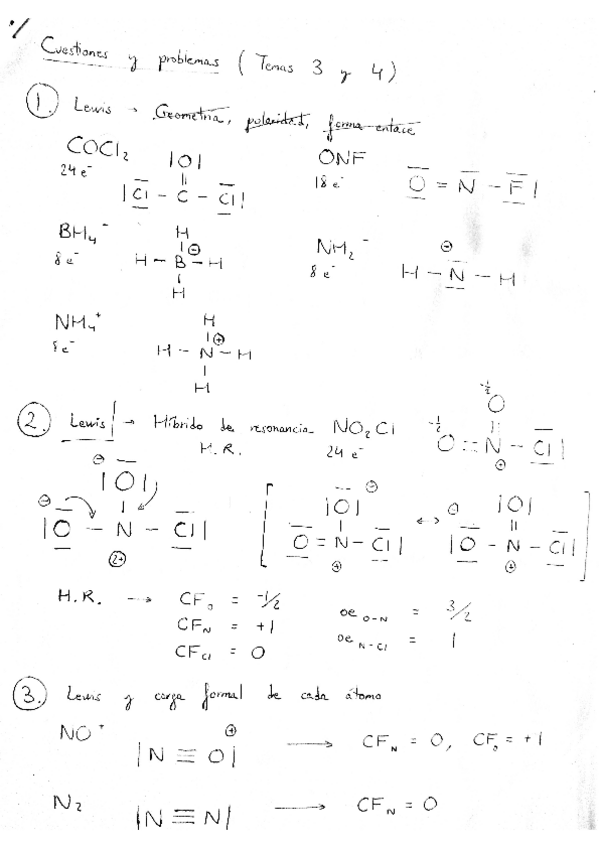 Cuestiones y problemas (Temas 3 y 4)
1. Lewis → Geometría, polaridad, forma enlace
COCl₂
24 e⁻
|O|
||
|Cl - C - Cl|
ONF
18 e⁻
O = N - F|
BH₄⁻
8 e⁻
H
|⊖
H - B - H
|
H
NH₂⁻
8 e⁻
⊖
H - N - H
NH₄⁺
8 e⁻
H
|⊕
H - N - H
|
H
2. Lewis → Híbrido de resonancia NO₂Cl
H.R. 24 e⁻
-½
O
-½ O N - Cl|
⊕
⊖
|O|
⊖
|O - N - Cl|
2+
⊖
|O|
O = N - Cl|
⊕
↔
⊖ |O|
||
|O - N - Cl|
⊕
H.R. → CF₀ = -1/2 oe O-N = 3/2
CF_N = +1 oe N-Cl = 1
CF_Cl = 0
3. Lewis y carga formal de cada átomo
NO⁺ |N ≡ O| ⊕ → CF_N = 0, CF₀ = +1
N₂ |N ≡ N| → CF_N = 0